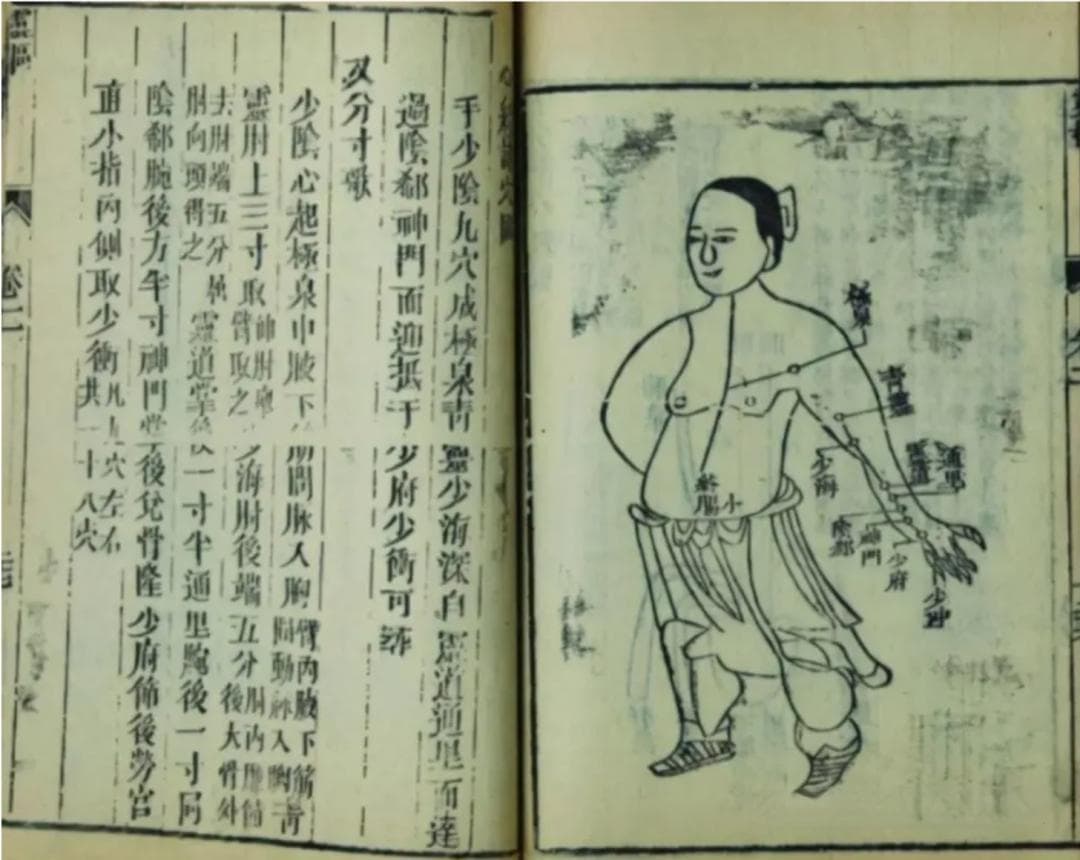 手少陰九穴成極泉青靈少海深自靈道通里而達
過陰郄神門而迎抵于少府少衝可尋
又分寸歌
少陰心起極泉中腋下筋間脉入胸臂內腋下筋間動脉入胸青
靈肘上三寸取伸肘舉臂取之少海肘後端五分肘內廉節後大骨外
去肘端五分屈肘向頭得之靈道掌後一寸半通里腕後一寸同
陰郄腕後方半寸神門掌後兌骨隆少府節後勞宮
直小指內側取少衝凡九穴左右共一十八穴
靈樞
卷二
極泉
青靈
少海
靈道
通里
陰郄
神門
少府
少冲
絡
小腸